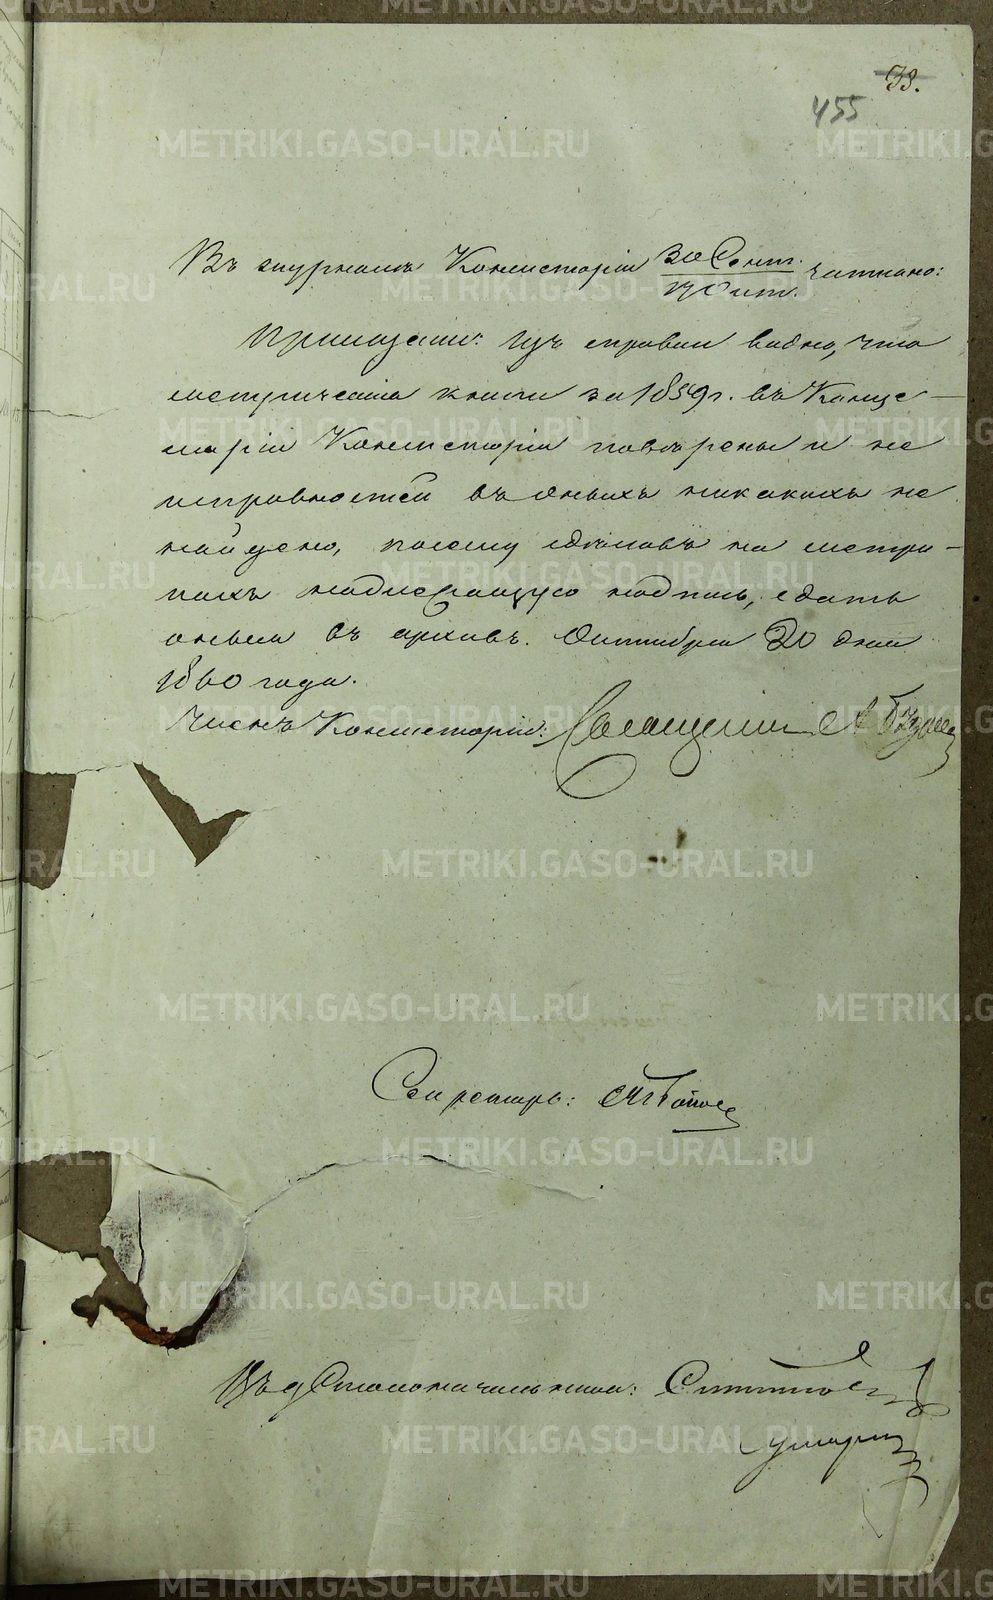 73.
455
Въ журналѣ Консисторіи 30 Сент. / 17 Окт. читано:
Приказали: Изъ справки видно, что
метрическія книги за 1859 г. въ Канце-
ляріи Консисторіи повѣрены и не
исправностей въ оныхъ никакихъ не
найдено, посему сдѣлавъ на метри-
кахъ надлежащую надпись, сдать
оныя въ архивъ. Октября 20 дня
1860 года.
Членъ Консисторіи: Священникъ А.
Секретарь:
Въ д. Столоначальника:
METRIKI.GASO-URAL.RU